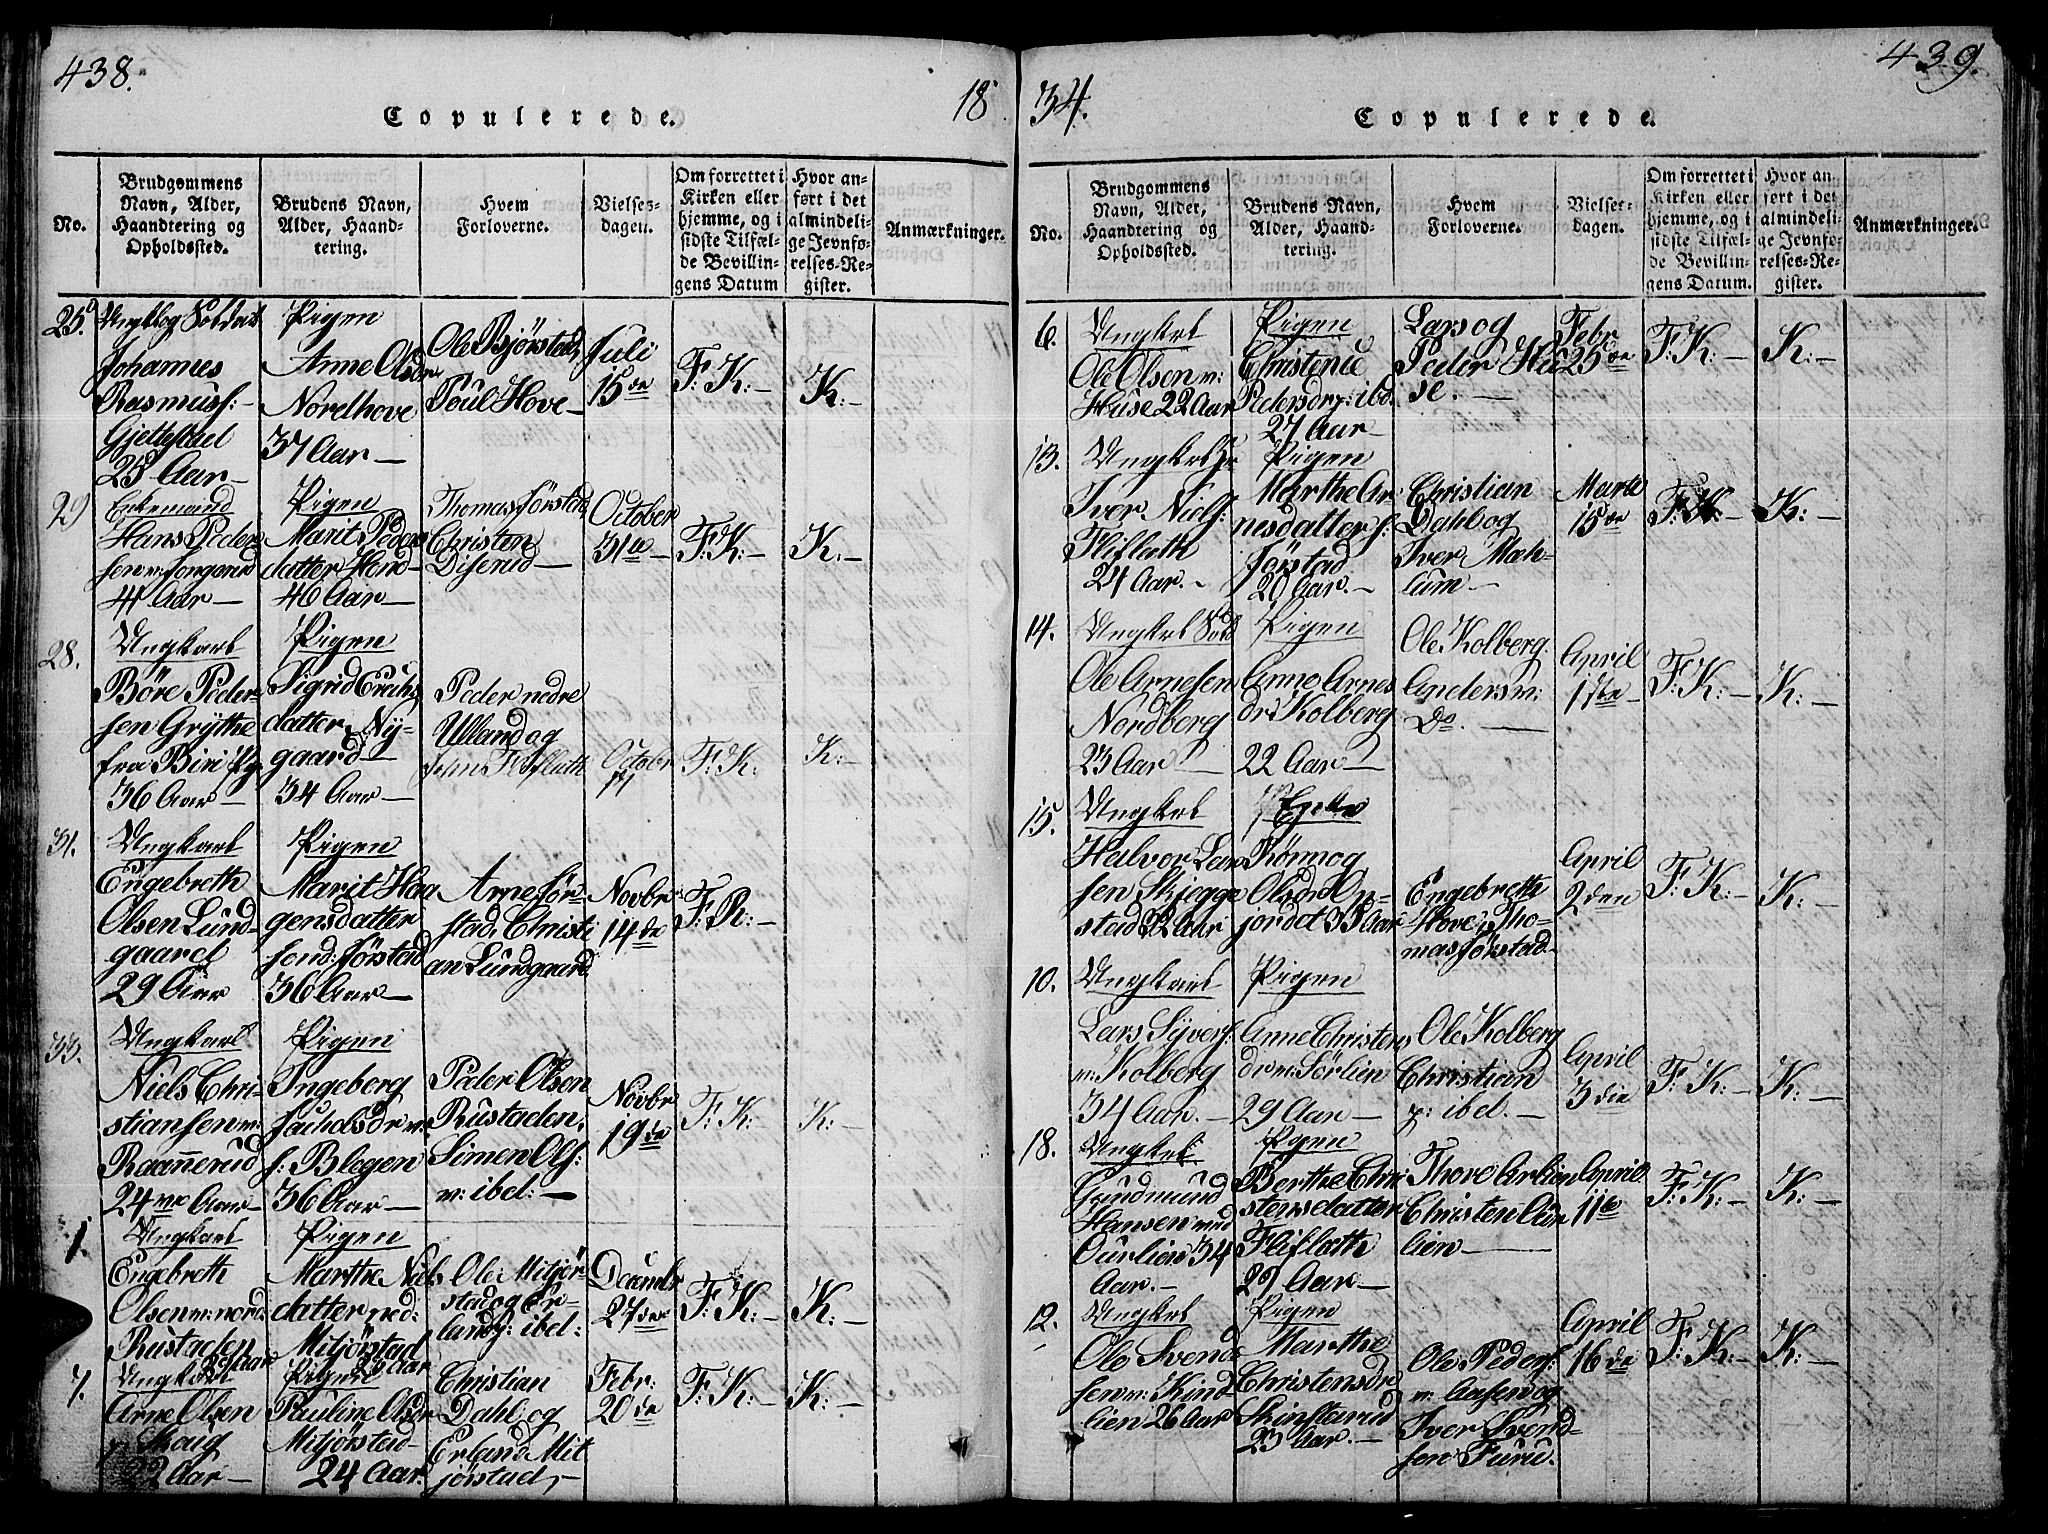 438.
18
Copulerede.
No.
Brudgommens
Navn, Alder,
Haandtering og
Opholdssted.
Brudens Navn,
Alder, Haand-
tering.
Hvem
Forloverne.
Vielses-
dagen.
Om forrettet i
Kirken eller
hjemme, og i
sidste Tilfæl-
de Bevillin-
gens Datum
Hvor an-
ført i det
almindeli-
ge Jevnfø-
relses-Re-
gister.
Anmærkninger.
25.
Johannes
Rasmuss:
25 Aar—
Pigen
Anne Olsdr
Nordhove
37 Aar—
Ole Bjørstad,
Poul Hove—
Juli
15de
F: K:—
K:—
29
Enkemand
Hans Peder
41 Aar—
Pigen
Marit Peders
datter
46 Aar—
Thomas Jørstad
Christen
Diserud—
October
31te
F: K:—
K:—
28.
Ungkarl
Böre Peder-
sen Grÿthe
fra Biri
36 Aar—
Pigen
Sigrid
datter Nÿ-
gaard—
34 Aar—
Peder nedre
Ulland og
October
17
F: K:
K:—
31.
Ungkarl
Engebreth
Olsen Lund-
gaard
29 Aar
Pigen
Marit Haa
gensdatter
Jørstad
36 Aar—
Arne Jör-
stad, Christi
an Lundgaard
Novbr
14de
F: K:—
33.
Ungkarl
Niels Chri-
stiansen
24 Aar—
Pigen
Ingeberg
Blegen
36 Aar—
Peder Olsen
Rustaden,
Simen Ols:
Novbr
19de
F: K:—
K:—
1
Ungkarl
Engebreth
Olsen nord:
Rustaden
Pigen
Marthe Niels
datter ned:
Mitjørstad
Ole Mitjør-
stad og Er-
December
27de
F: K:—
K:—
7.
Ungkarl
Arne Olsen
Skaig
22 Aar—
Pigen
Pauline Olsdr
Mitjørstad
24 Aar.
Christian
Dahl og
Erland Mit
jørstad,—
Febr:
20de
F: K:—
K:—
34.
439.
Copulerede.
No.
Brudgommens
Navn, Alder,
Haandtering og
Opholdssted.
Brudens Navn,
Alder, Haand-
tering.
Hvem
Forloverne.
Vielses-
dagen.
Om forrettet i
Kirken eller
hjemme, og i
sidste Tilfæl-
de Bevillin-
gens Datum.
Hvor an-
ført i det
almindeli-
ge Jevnfø-
relses-Re-
gister.
Anmærkninger.
6.
Ungkrl
Ole Olsen
Huse 22 Aar
Pigen
Christine
Pedersdr
27 Aar—
Lars og
Peder Hu
se.—
Febr
25de
F: K:—
K:—
13.
Ungkrl
Iver Niels:
Fliflath
24 Aar.—
Pigen
Marthe Ar
nesdatter
Jørstad
20 Aar.—
Christian
Dahl og
Iver Mæh-
lum—
15de
F: K:—
K:—
14.
Ungkrl Sold
Ole Arnesen
Nordberg
23 Aar—
Pigen
Anne Arnes
dr: Kolberg
22 Aar—
Ole Kolberg.
Anders
Do.—
April
1ste
F: K:—
K:—
15.
Ungkrl
Halvor Lar
sen Skjegge
stad 32 Aar
Rönnog
Olsdr
jordet 33 Aar
Engebreth
Hove, Tho-
mas Jørstad—
April
2den
F: K:—
K:—
10.
Ungkarl
Lars Sÿvers:
Kolberg
34 Aar.—
Pigen
Anne Christens
Sørlien
29 Aar—
Ole Kolberg
Christian
April
3die
F: K:—
K:—
18.
Ungkrl
Gudmund
Hansen
Ourlien 34
Aar.—
Pigen
Berthe Chri
stensdatter
Fliflath
29 Aar—
Christen Our
lien—
April
11te
F: K:—
K:—
12.
Ungkrl
Ole Svend
sen Kind
lien 26 Aar
Pigen
Marthe
Christensdr
Skinstarud
23 Aar.—
Ole Peders:
Aasen og
Iver Svend-
sen Furu.
April
16de
F: K:—
K:—